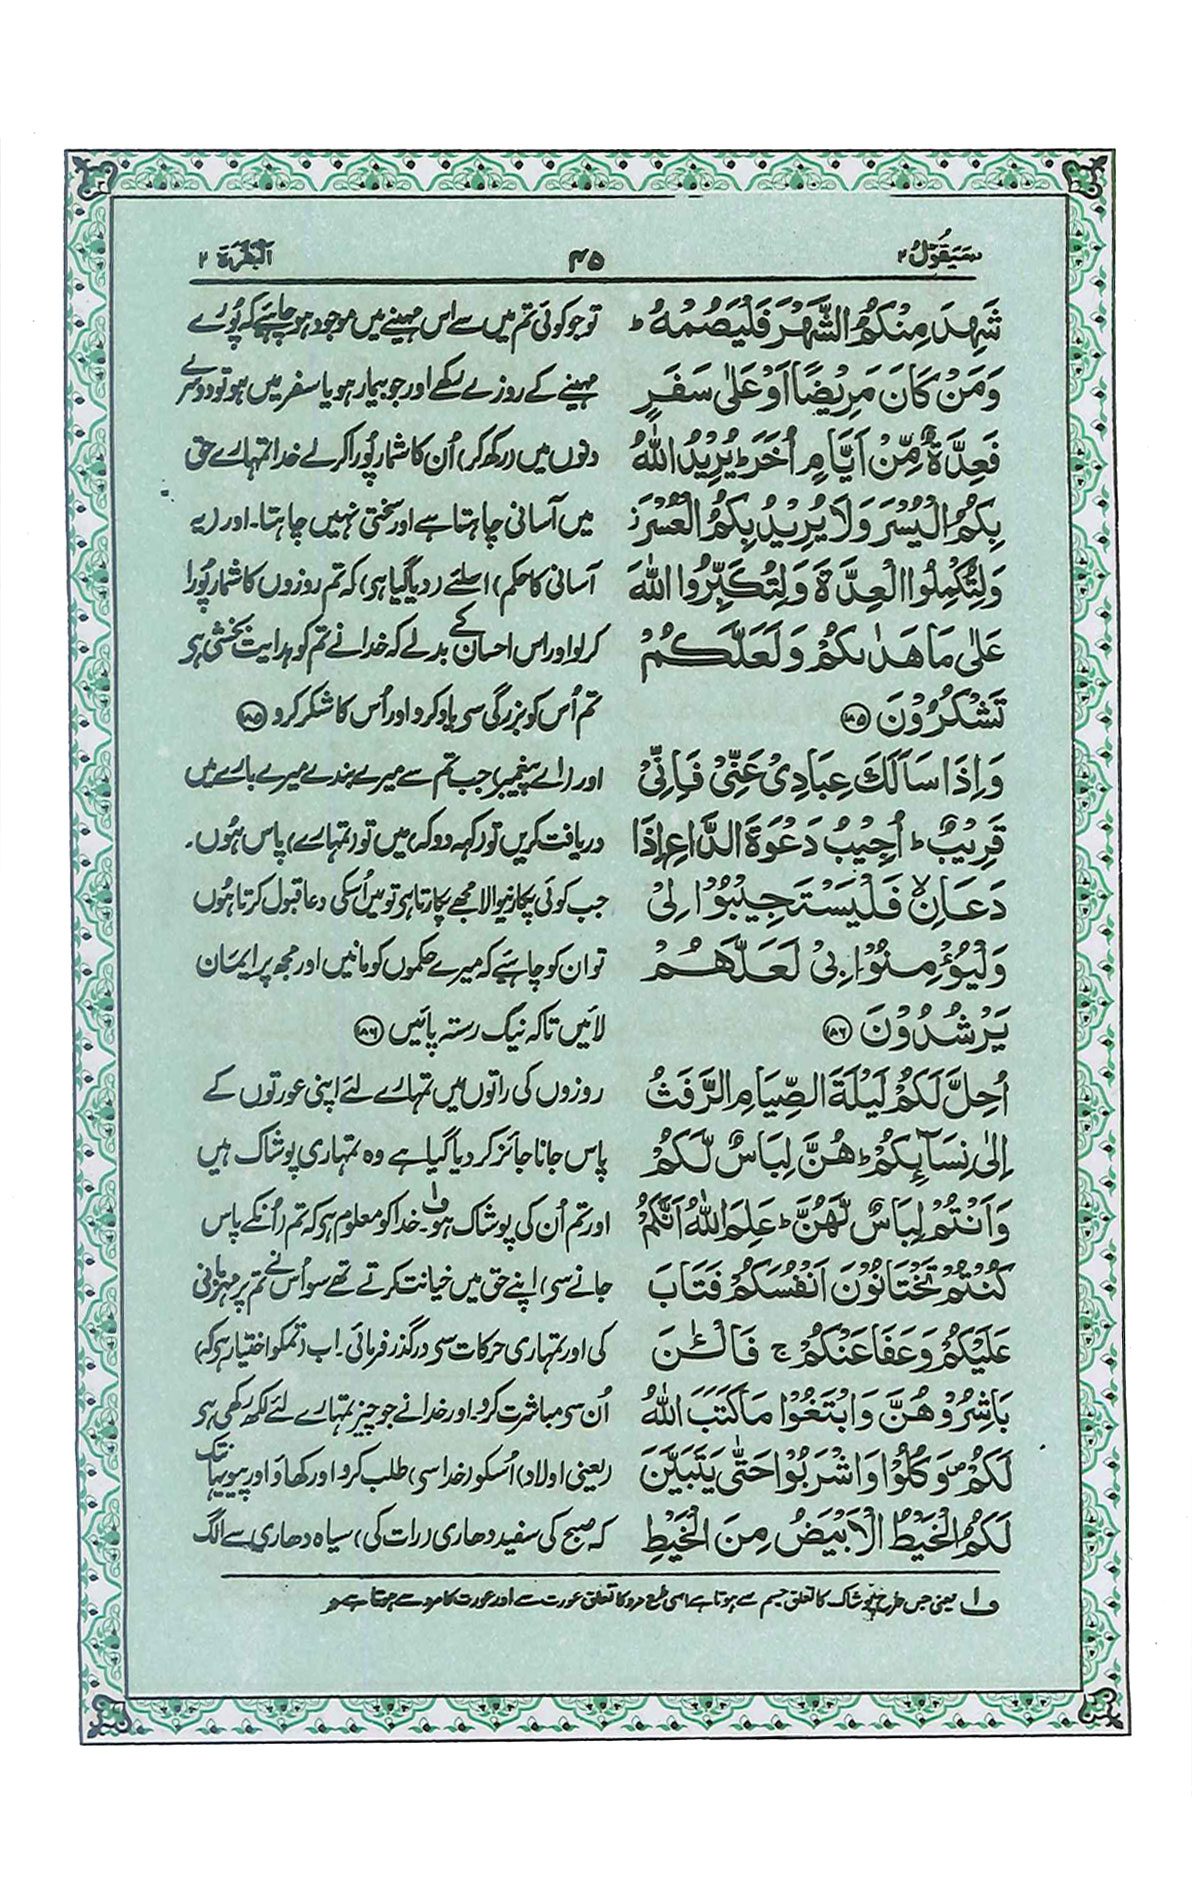 سَيَقُوْلُ ٢
۴۵
اَلْبَقَرَة ٢
شَهِدَ مِنْكُمُ الشَّهْرَ فَلْيَصُمْهُ ؕ
وَمَنْ كَانَ مَرِيْضًا اَوْ عَلٰى سَفَرٍ
فَعِدَّةٌ مِّنْ اَيَّامٍ اُخَرَ ؕ يُرِيْدُ اللّٰهُ
بِكُمُ الْيُسْرَ وَلَا يُرِيْدُ بِكُمُ الْعُسْرَ ز
وَلِتُكْمِلُوا الْعِدَّةَ وَلِتُكَبِّرُوا اللّٰهَ
عَلٰى مَا هَدٰىكُمْ وَلَعَلَّكُمْ
تَشْكُرُوْنَ ﴿۱۸۵﴾
وَاِذَا سَاَلَكَ عِبَادِيْ عَنِّيْ فَاِنِّيْ
قَرِيْبٌ ؕ اُجِيْبُ دَعْوَةَ الدَّاعِ اِذَا
دَعَانِ ۙ فَلْيَسْتَجِيْبُوْا لِيْ
وَلْيُؤْمِنُوْا بِيْ لَعَلَّهُمْ
يَرْشُدُوْنَ ﴿۱۸۶﴾
اُحِلَّ لَكُمْ لَيْلَةَ الصِّيَامِ الرَّفَثُ
اِلٰى نِسَآئِكُمْ ؕ هُنَّ لِبَاسٌ لَّكُمْ
وَاَنْتُمْ لِبَاسٌ لَّهُنَّ ؕ عَلِمَ اللّٰهُ اَنَّكُمْ
كُنْتُمْ تَخْتَانُوْنَ اَنْفُسَكُمْ فَتَابَ
عَلَيْكُمْ وَعَفَا عَنْكُمْ ج فَالْـٰٔنَ
بَاشِرُوْهُنَّ وَابْتَغُوْا مَا كَتَبَ اللّٰهُ
لَكُمْ ص وَكُلُوْا وَاشْرَبُوْا حَتّٰى يَتَبَيَّنَ
لَكُمُ الْخَيْطُ الْاَبْيَضُ مِنَ الْخَيْطِ
تو جو کوئی تم میں سے اس مہینے میں موجود ہو چاہئے کہ پُورے
مہینے کے روزے رکھے اور جو بیمار ہو یا سفر میں ہو تو دوسرے
دنوں میں (رکھ کر) اُن کا شمار پُورا کر لے خدا تمہارے حق
میں آسانی چاہتا ہے اور سختی نہیں چاہتا۔ اور (یہ
آسانی کا حکم) اسلئے (دیا گیا ہی) کہ تم روزوں کا شمار پُورا
کر لو اور اس احسان کے بدلے کہ خدا نے تم کو ہدایت بخشی ہی
تم اُس کو بزرگی سی یاد کرو اور اُس کا شکر کرو ﴿۱۸۵﴾
اور (اے پیغمبر) جب تم سے میرے بندے میرے بارے میں
دریافت کریں تو (کہہ دو کہ) میں تو (تمہارے) پاس ہُوں۔
جب کوئی پکارنیوالا مجھے پکارتا ہی تو میں اُسکی دعا قبول کرتا ہُوں
تو ان کو چاہئے کہ میرے حکموں کو مانیں اور مجھ پر ایمان
لائیں تاکہ نیک رستہ پائیں ﴿۱۸۶﴾
روزوں کی راتوں میں تمہارے لئے اپنی عورتوں کے
پاس جانا جائز کر دیا گیا ہے وہ تمہاری پوشاک ہیں
اور تم اُن کی پوشاک ہو ف۱۔ خدا کو معلوم ہی کہ تم (اُنکے پاس
جانے سی) اپنے حق میں خیانت کرتے تھے سو اُس نے تم پر مہربانی
کی اور تمہاری حرکات سی درگذر فرمائی۔ اب (تمکو اختیار ہی کہ)
اُن سی مباشرت کرو۔ اور خدا نے جو چیز تمہارے لئے لکھ رکھی ہی
(یعنی اولاد) اُسکو (خدا سی) طلب کرو اور کھاؤ اور پیو یہانتک
کہ صبح کی سفید دھاری (رات کی) سیاہ دھاری سے الگ
ف۱ یعنی جس طرح پوشاک کا تعلق جسم سے ہوتا ہے اسی طرح مرد کا تعلق عورت سے اور عورت کا مرد سے ہوتا ہے